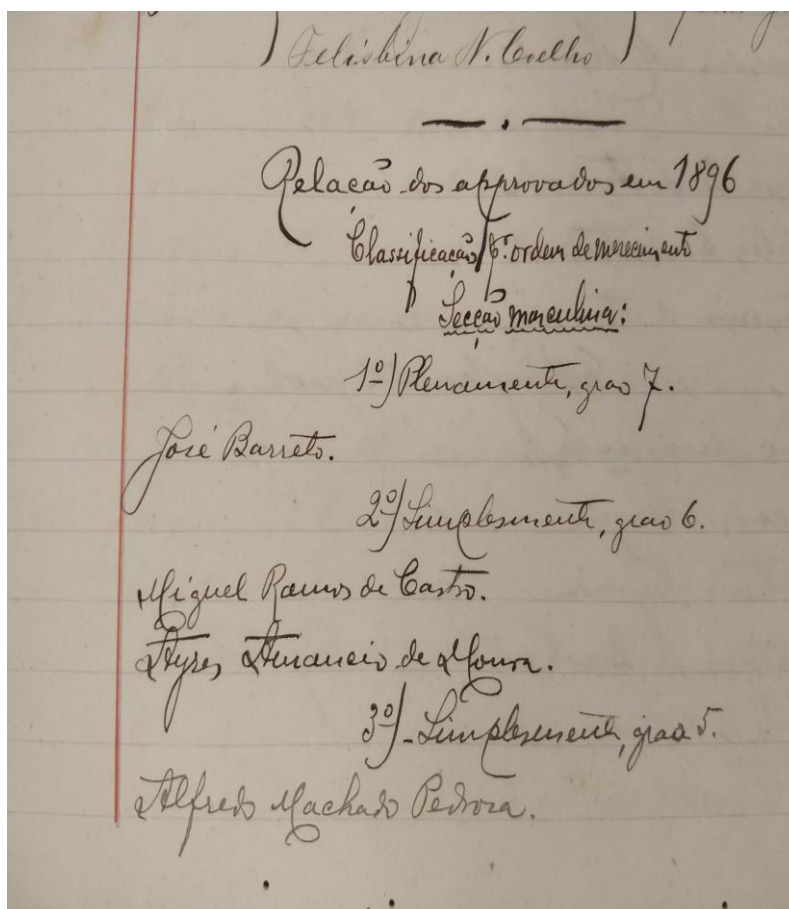 Felisbina N. Coelho
Relação dos approvados em 1896
Classificação p.r ordem de merecimento
Secção masculina:
1º) Plenamente, grao 7.
José Barreto.
2º) Simplesmente, grao 6.
Miguel Ramos de Castro.
Ayres Amancio de Moura.
3º) - Simplesmente, grao 5.
Alfredo Machado Pedrosa.